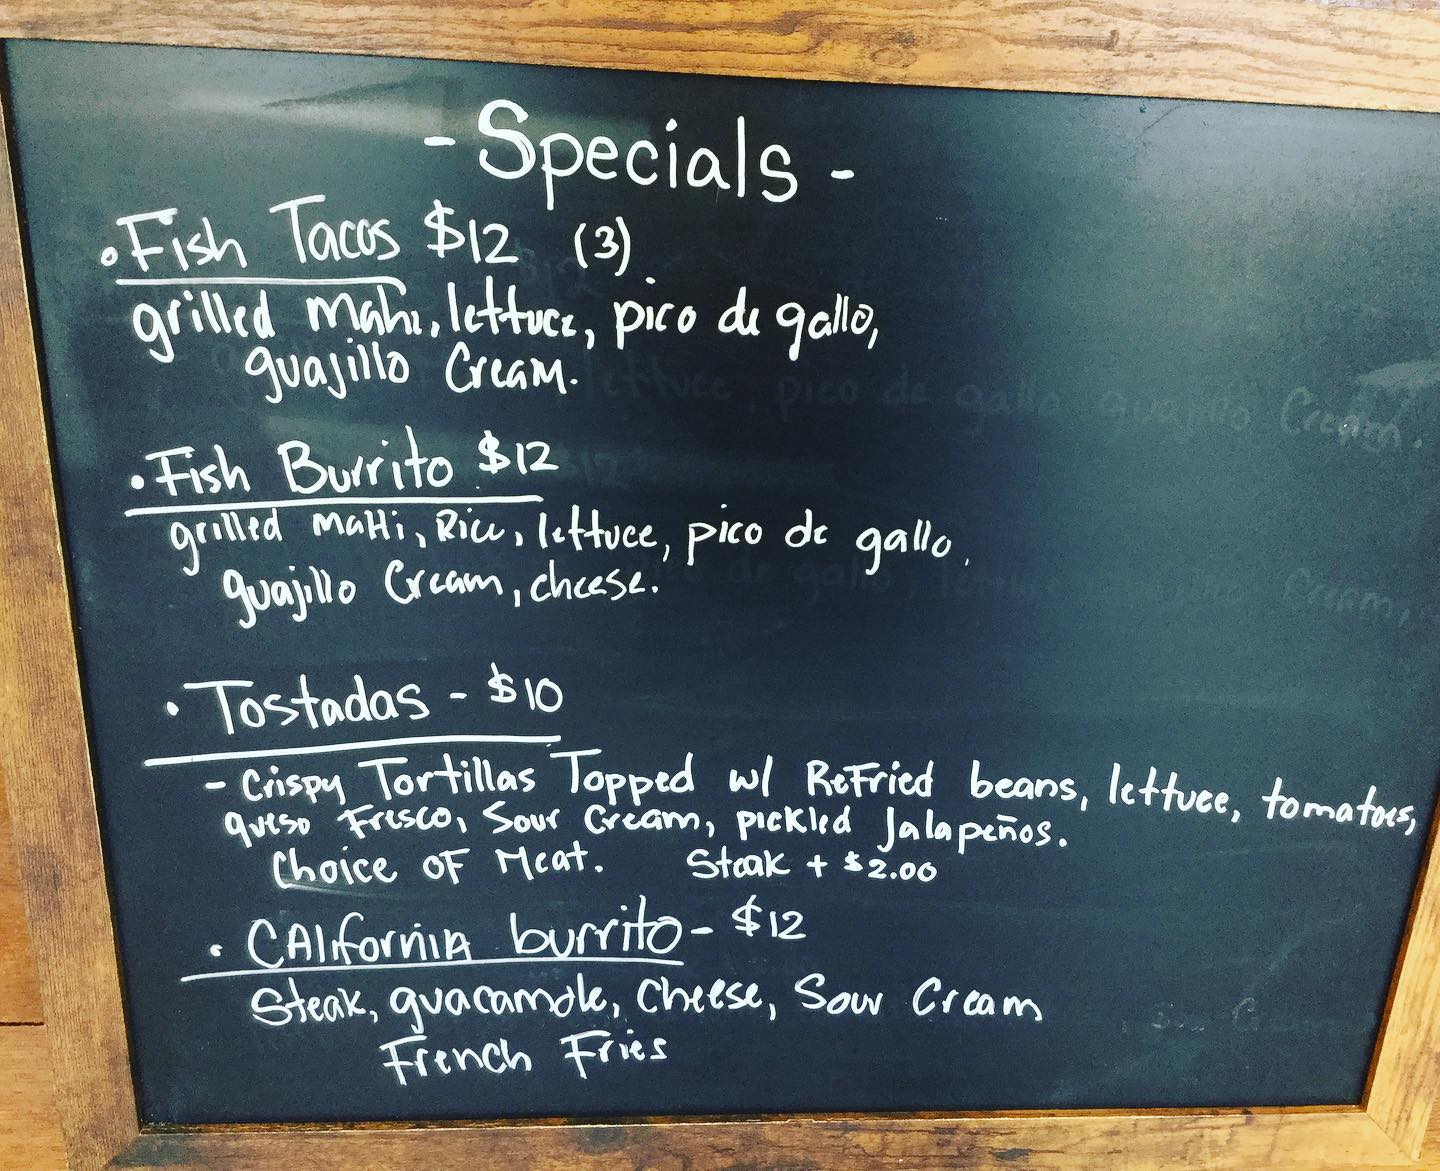 - Specials -
• Fish Tacos $12 (3)
grilled Mahi, lettuce, pico de gallo,
guajillo Cream.
• Fish Burrito $12
grilled MaHi, Rice, lettuce, pico de gallo,
guajillo Cream, cheese.
• Tostadas - $10
- Crispy Tortillas Topped w/ ReFried beans, lettuce, tomatoes,
queso Fresco, Sour Cream, pickled Jalapeños.
Choice OF Meat. Steak + $2.00
• CAlifornIA burrito - $12
Steak, guacamole, Cheese, Sour Cream
French Fries